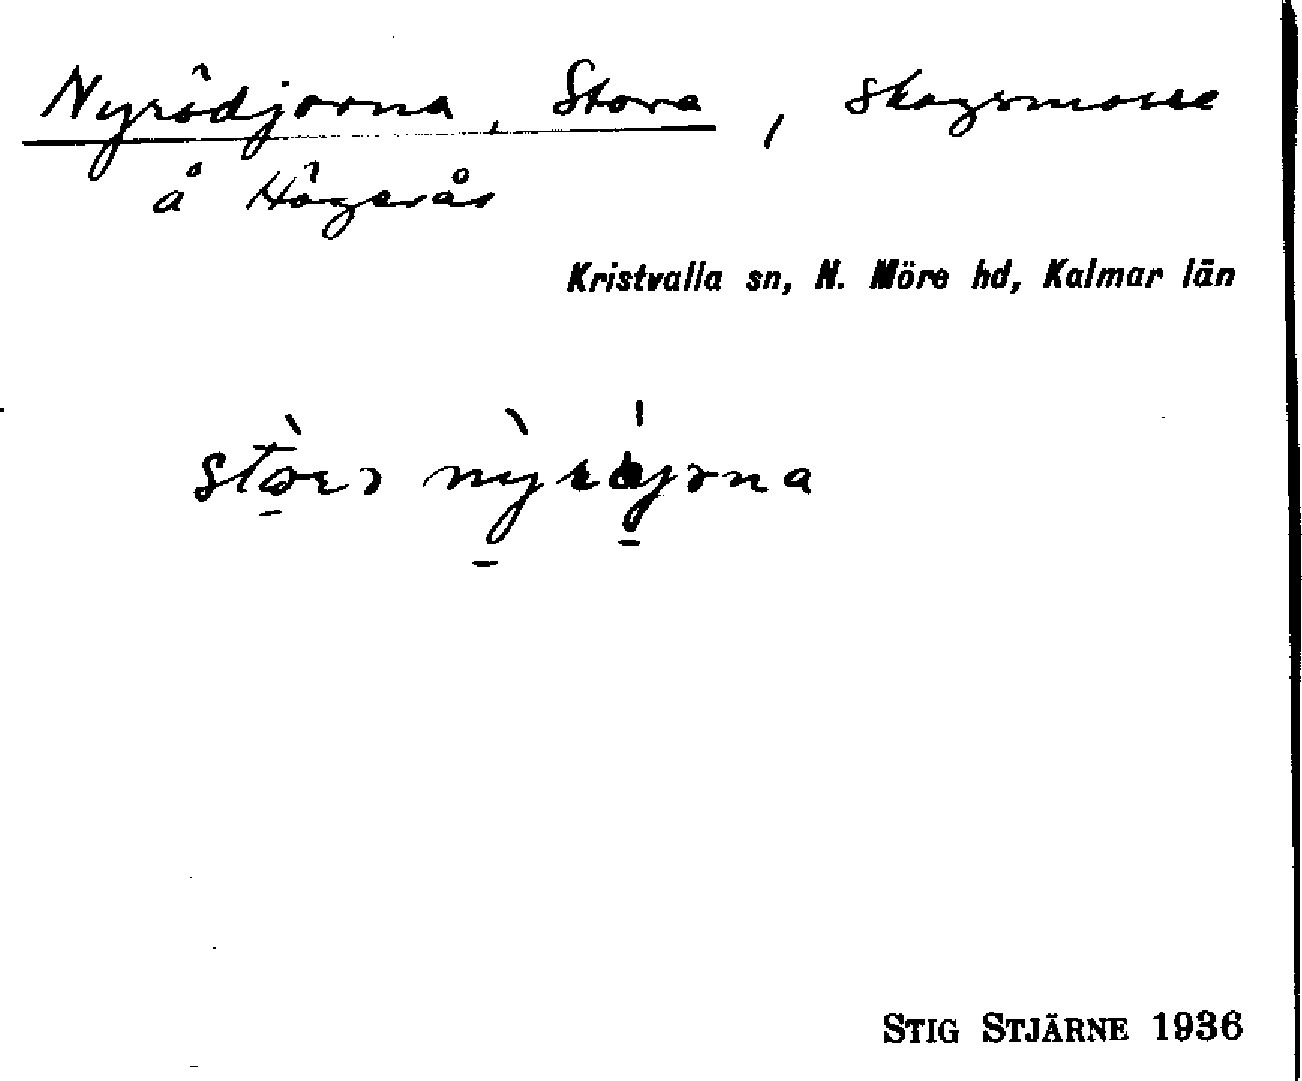 Nyrödjorna, Stora, skogsmosse
å Högerås
Kristvalla sn, N. Möre hd, Kalmar län
STIG STJÄRNE 1936